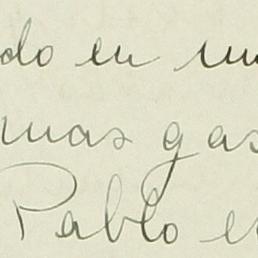 do en un
unas gas
Pablo e